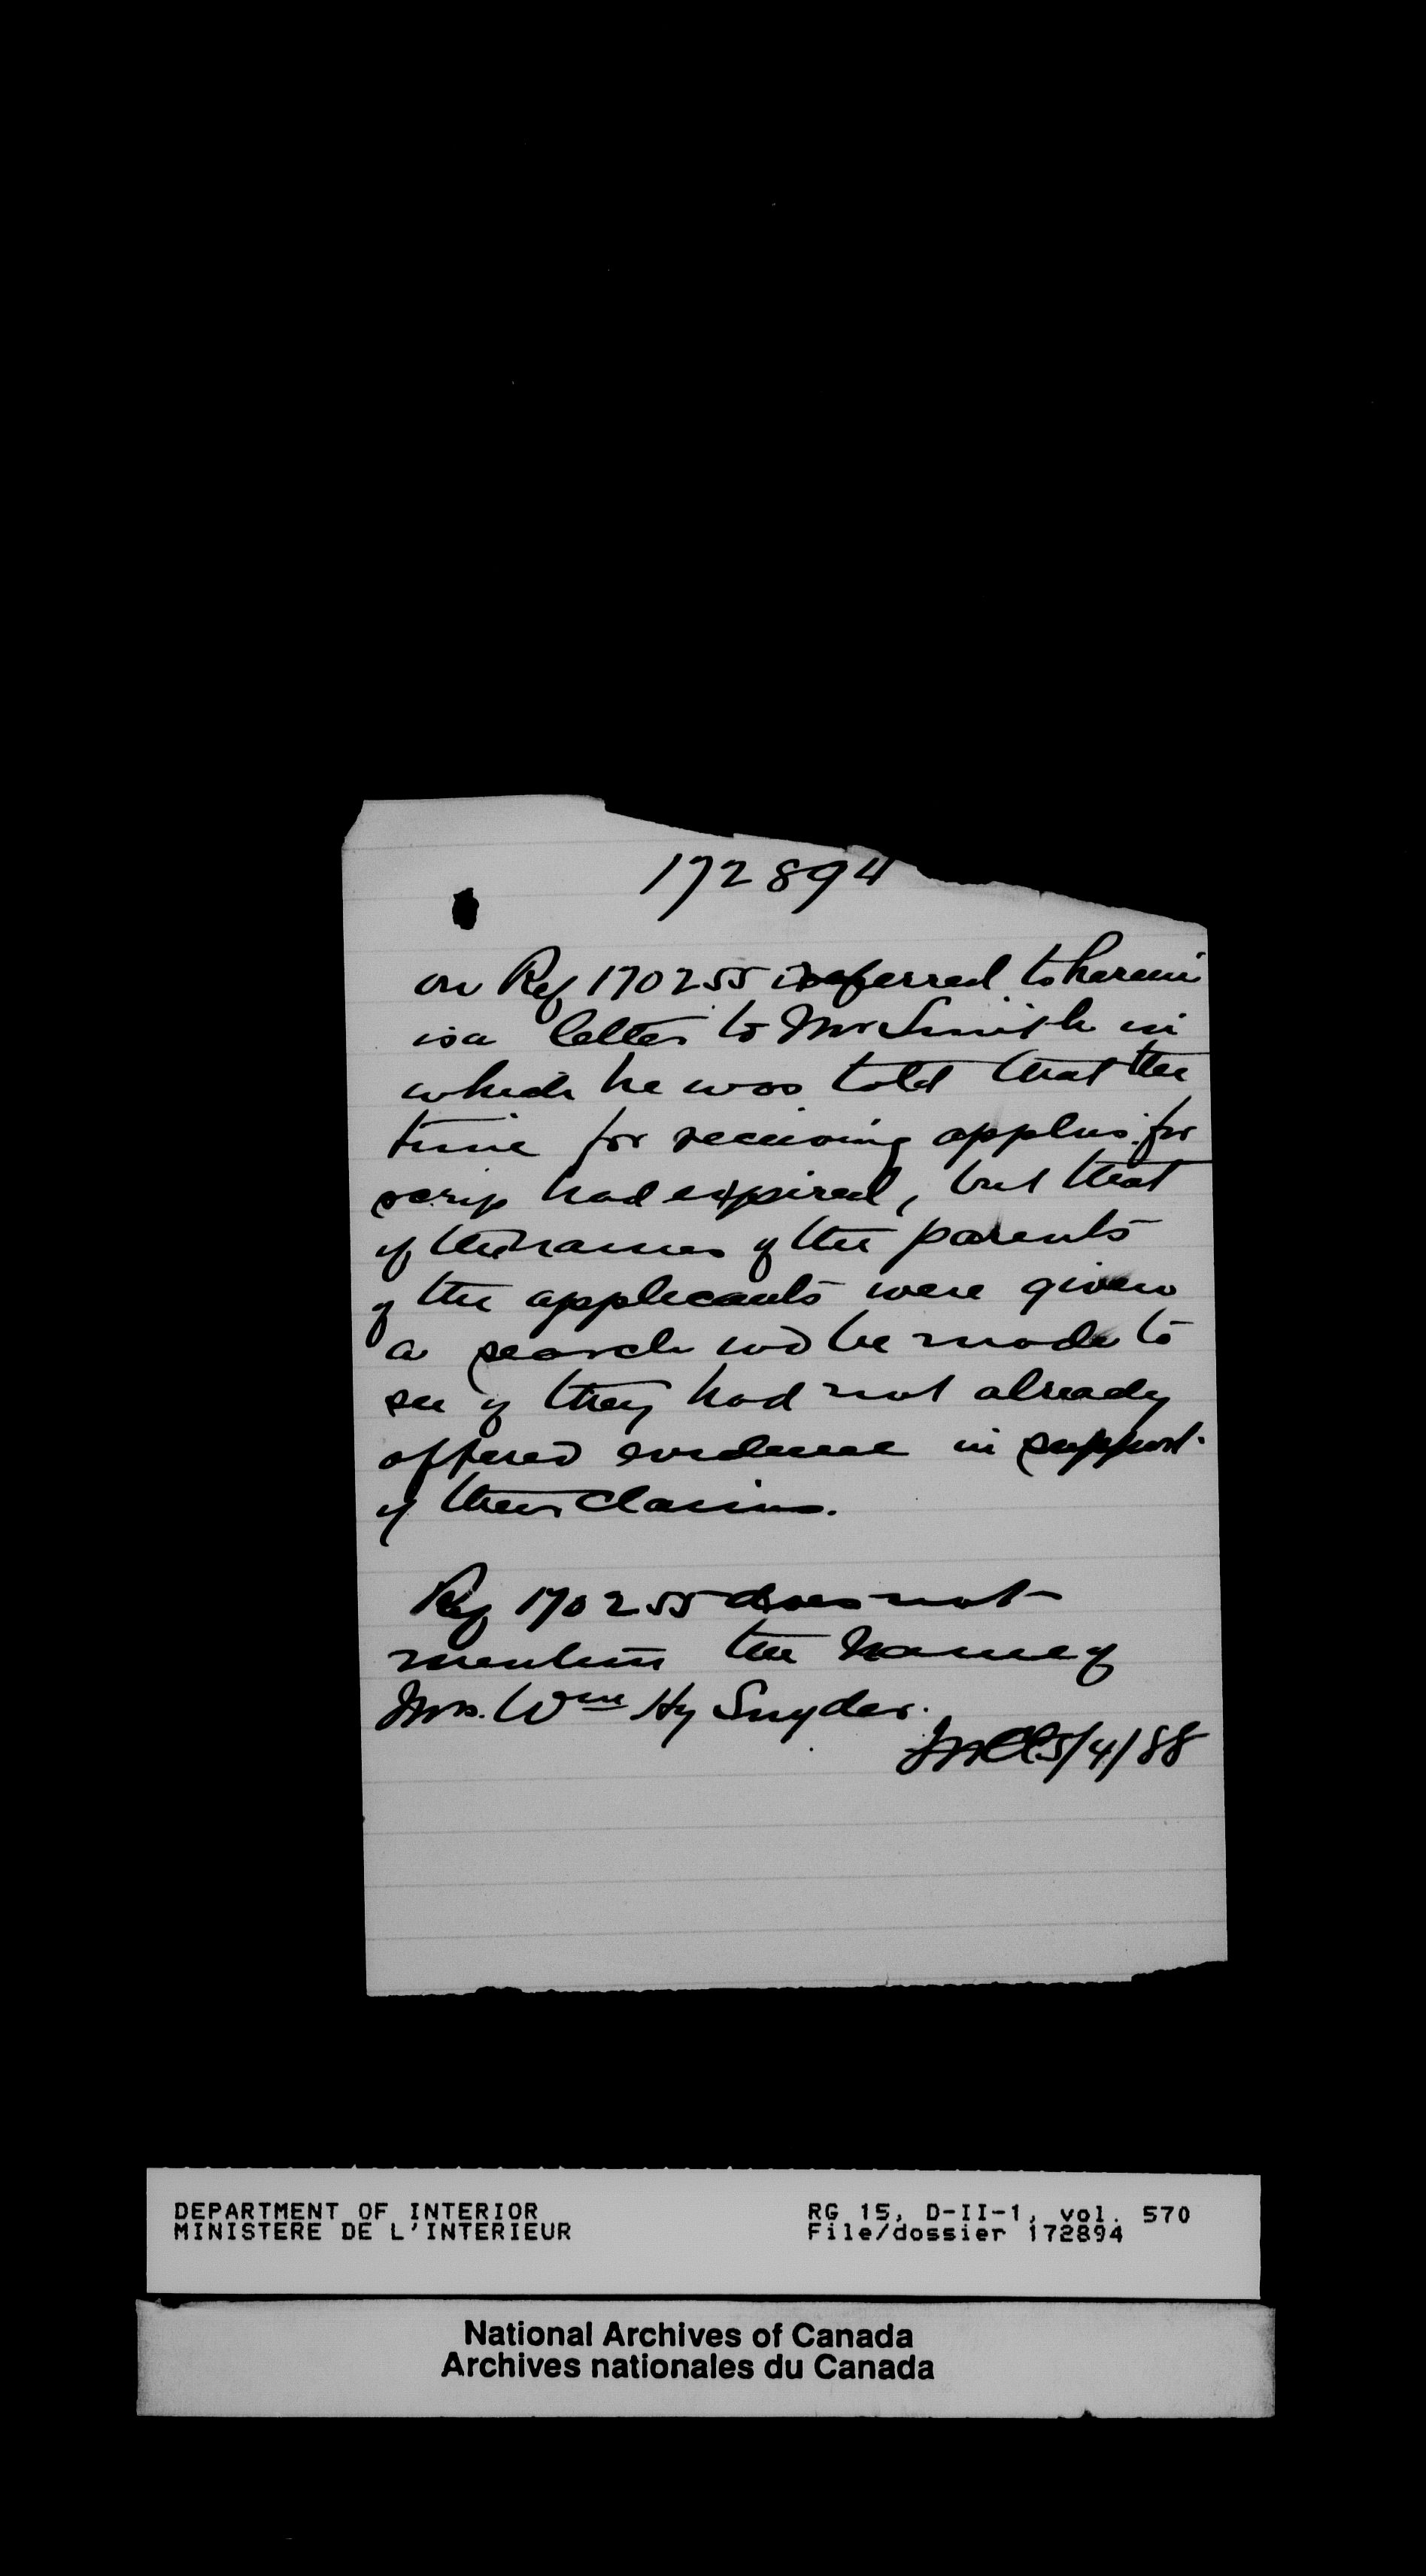 172894
on Ref 170255 referred to herein
is a letter to Mr Smith in
which he was told that the
time for receiving applns. for
scrip had expired, but that
if the names of the parents
of the applicants were given
a search wd be made to
see if they had not already
offered evidence in support
of their claims.
Ref 170255 does not
mention the name of
Mrs. Wm Hy Snyder.
5/4/88
DEPARTMENT OF INTERIOR
MINISTERE DE L'INTERIEUR
RG 15, D-II-1, vol. 570
File/dossier 172894
National Archives of Canada
Archives nationales du Canada